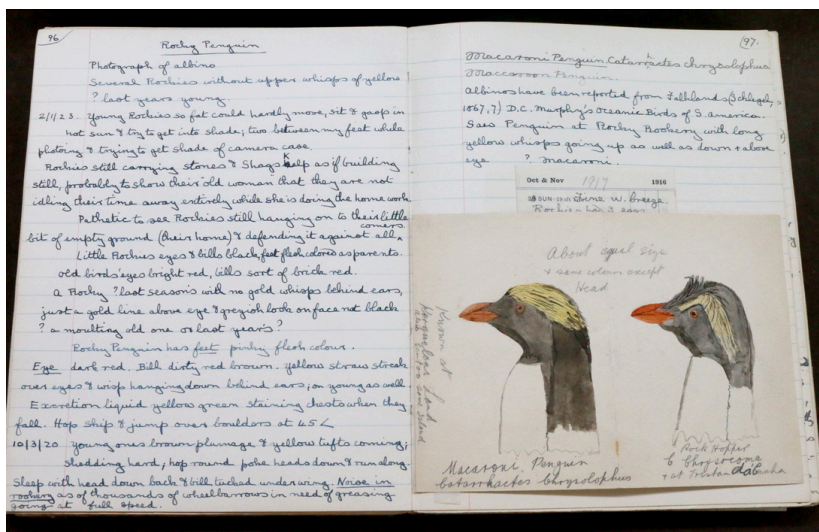 96
Rocky Penguin
Photograph of albino
Several Rockies without upper whisps of yellow
? last years young.
2/1/23. Young Rockies so fat could hardly move, sit & gasp in
hot sun & try to get into shade; two between my feet while
photoing & trying to get shade of camera case.
Rockies still carrying stones & Shags Kelp as if building
still, probably to show their old woman that they are not
idling their time away entirely while she is doing the home work
Pathetic to see Rockies still hanging on to their little
bit of empty ground (their home) & defending it against all comers.
Little Rockies eyes & bills black, feet flesh colored as parents.
old birds' eyes bright red, bills sort of brick red.
a Rocky ? last season's with no gold whisps behind ears,
just a gold line above eye & greyish look on face not black
? a moulting old one or last year's?
Rocky Penguin has feet pinky flesh colour.
Eye dark red. Bill dirty red brown. yellow straw streak
over eyes & wisp hanging down behind ears; on young as well
Excretion liquid yellow green staining chests when they
fall. Hop skip & jump over boulders at 45
10/3/20 young ones brown plumage & yellow tufts coming;
shedding hard; hop round poke heads down & run along.
Sleep with head down back & bill tucked under wing. Noise in
rookery as of thousands of wheelbarrows in need of greasing
going at full speed.
97.
Macaroni Penguin Catarrhactes chrysolophus
Maccaroon Penguin.
Albinos have been reported from Falklands (Schlegel,
1867, 7) D.C. Murphy's Oceanic Birds of S. america.
Saw Penguin at Rocky Rookery with long
yellow whisps going up as well as down & above
eye ? Macaroni.
Oct & Nov 1917 1916
28 SUN Fine W. breeze.
Rockies
About equal size
& same colours except
Head
Known at
Kerguelen Land
Macaroni Penguin
Catarrhactes Chrysolophus
Rock Hopper
C Chrysocome
at Tristan da Cunha